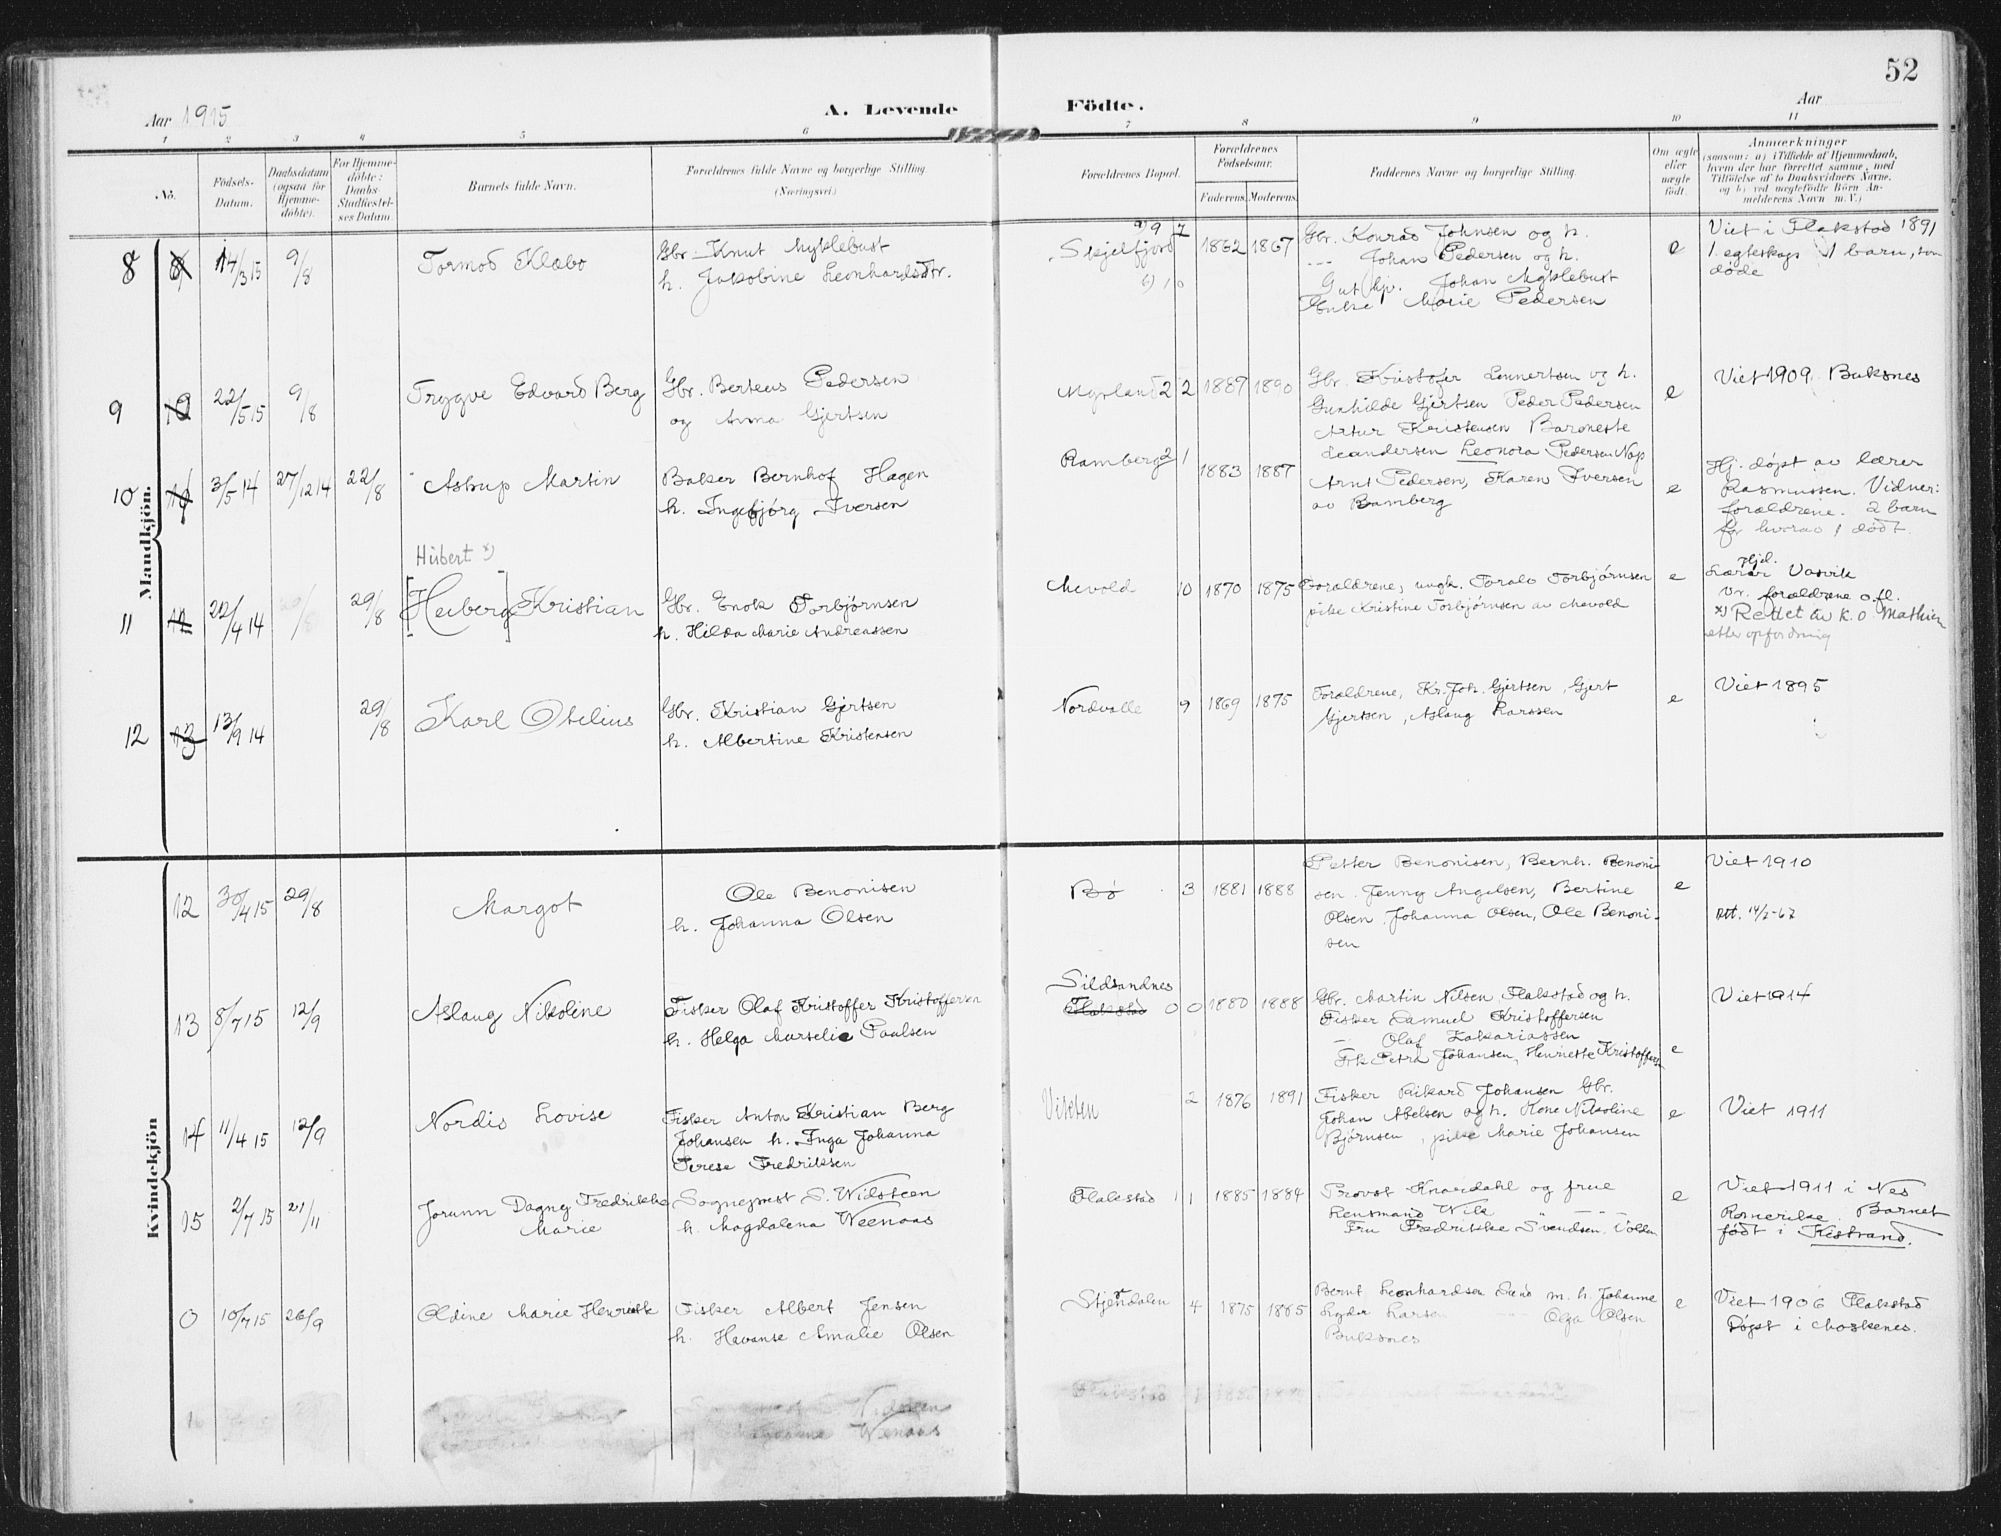 52
Aar 1915
A. Levende
Födte.
Aar
1 2 3 4 5 6 7 8 9 10 11
No.
Födsels-
Datum.
Daabsdatum
(ogsaa for
Hjemme-
döbte).
For Hjemme-
döbte:
Daabs-
Stadfæstel-
ses Datum.
Barnets fulde Navn.
Forældrenes fulde Navne og borgerlige Stilling
(Næringsvei.)
Forældrenes Bopæl.
Forældrenes
Födselsaar.
Faderens. Moderens.
Faddernes Navne og borgerlige Stilling.
Om ægte
eller
uægte
födt.
Anmærkninger
(saasom: a) i Tilfælde af Hjemmedaab,
hvem der har forrettet samme, med
Tilföielse af to Daabsvidners Navne,
og b) ved uægtefödte Börn An-
melderens Navn m. V.)
Mandkjön.
8 14/3 15 9/8 Tormod Klæbo
Gbr. Knut Myklebust
h. Jakobine Leonhardsdtr.
a) 9 7
Skjelfjord
b) 1 0
1862 1867
Gbr. Konrad Johnsen og h.
--- Johan Pedersen og h.
Gut Johan Myklebust
Enke Marie Pedersen
e
Viet i Flakstad 1891
1 egteskap 1 barn, som
døde
9 22/5 15 9/8 Trygve Edvard Berg
Gbr. Berteus Pedersen
og Anna Gjertsen
Myrland 2 2 1887 1890
Gbr. Kristofer Lennertsen og h.
Gunhilde Gjertsen Peder Pedersen
Artur Kristensen Baroneste
Leandersen Leonora Pedersen Nap
e
Viet 1909 Buksnes
10 3/5 14 27/12 14 22/8 Astrup Martin
Baker Bernhof Hagen
h. Ingebjørg Iversen
Ramberg 2 1 1883 1887
Arnt Pedersen, Karen Iversen
av Ramberg
e
Hj. døpt av lærer
Rasmussen. Vidner:
forældrene. 2 barn
før hvorav 1 dødt.
Hubert x)
11 22/4 14 29/8 29/8 [Heiberg] Kristian
Gbr. Enok Torbjørnsen
h. Hilda Marie Andreassen
Nevold 10 1870 1875
Forældrene, ungk. Toralv Torbjørnsen
pike Kristine Torbjørnsen av Nevold
e
Hjd.
Lærer Vasvik
Vr. forældrene o. fl.
x) Rettet av K. O. Mathisen
etter opfordning
12 13/9 14 29/8 Karl Otelius
Gbr. Kristian Gjertsen
h. Albertine Kristensen
Nordvalle 9 1869 1875
Forældrene, Kr. Joh. Gjertsen, Gjert
Gjertsen, Aslaug Larssen
e
Viet 1895
Kvindekjön
12 30/4 15 29/8 Margot
Ole Benonisen
h. Johanna Olsen
Bø 3 1881 1888
Petter Benonisen, Bernh. Benoni-
sen. Jenny Angelsen, Bertine
Olsen. Johanna Olsen, Ole Benoni-
sen
e
Viet 1910
Att. 14/2-62
13 8/7 15 12/9 Aslaug Nikoline
Fisker Olaf Kristoffer Kristoffersen
h. Helga Marselie Paulsen
Sildsandnes
Flakstad 0 0 1880 1888
Gbr. Martin Nilsen, Flakstad og h.
Fisker Samuel Kristoffersen
- Olaf Zakariassen
Frk Petra Johansen, Henriette Kristoffersen
e
Viet 1914
14 11/4 15 12/9 Nordis Lovise
Fisker Anton Kristian Berg
Johansen h. Inga Johanna
Terese Fredriksen
Vikten 2 1876 1891
Fisker Rikard Johansen Gbr.
Johan Abelsen og h. Kone Nikoline
Bjørnsen, pike Marie Johansen
e
Viet 1911
15 2/7 15 21/11 Jorunn Dagny Fredrikke
Marie
Sogneprest S. Widsteen
h. Magdalena Weenaas
Flakstad 1 1 1885 1884
Provst Knardahl og frue
Lensmand Wik - - -
Fru Fredrikke Svendsen, Volden
e
Viet 1911 i Nes
Romerike. Barnet
født i Kistrand.
0 10/7 15 26/9 Oldine Marie Henriette
Fisker Albert Jensen
h. Havanse Amalie Olsen
Stjerdalen 4 1875 1885
Bernt Leonhardsen Sund m. h. Johanne
Lyder Larsen --- Olga Olsen
Buksnes
e
Viet 1906 Flakstad
Døpt i Moskenes.
16
Widsteen
Wenaas
Flakstad 1 1885